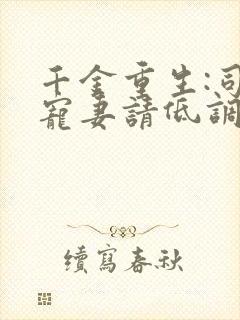 千金重生:司
寵妻請低調
續寫春秋